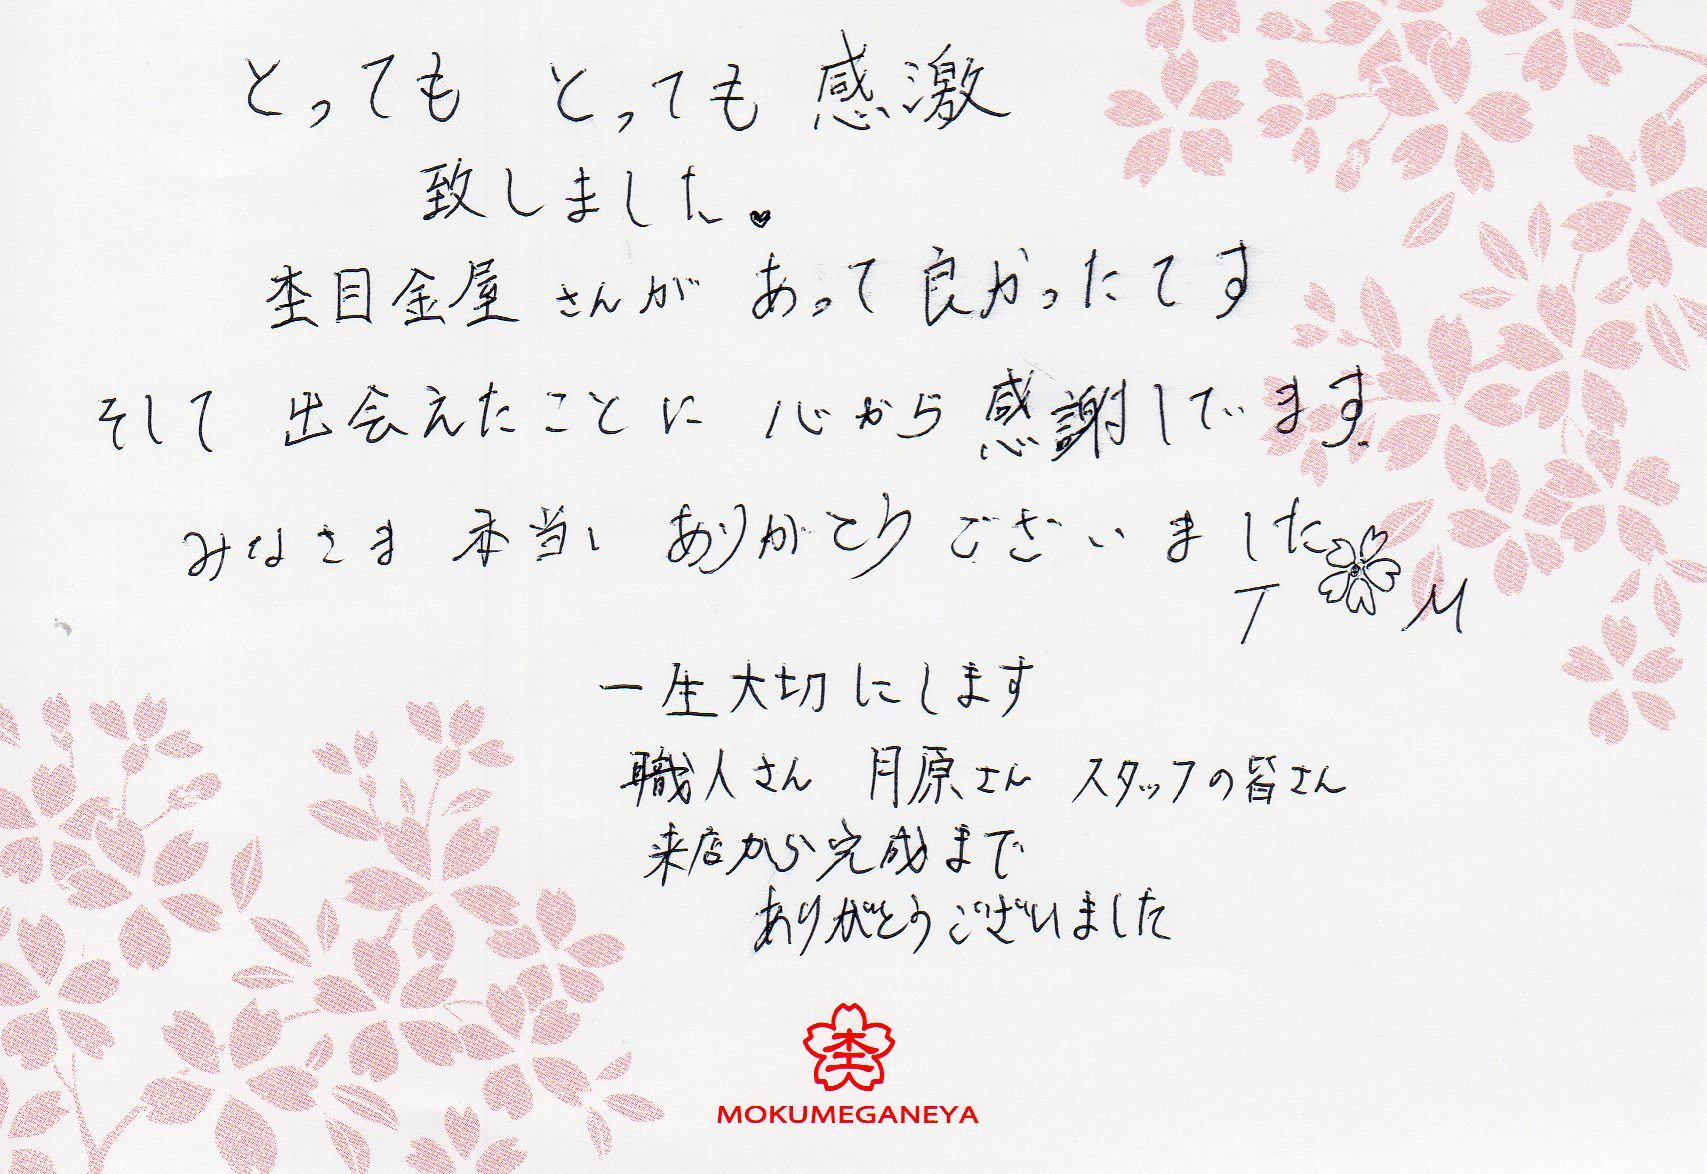 とっても とっても 感激
致しました。
杢目金屋さんが あって良かったてす
そして 出会えたことに 心から感謝してます
みなさま 本当に ありがとう ございました
T M
一生大切にします
職人さん 月原さん スタッフの皆さん
来店から完成まで
ありがとうございました
杢
MOKUMEGANEYA